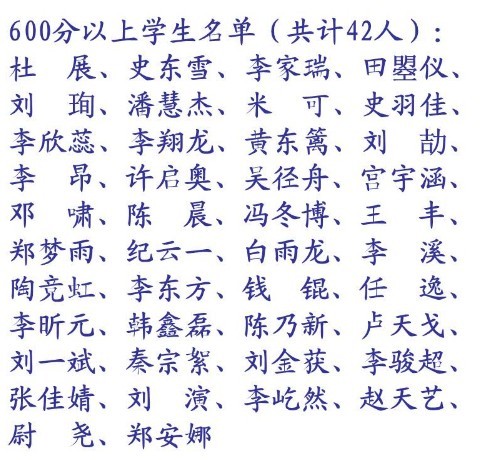 600分以上学生名单（共计42人）：
杜　展、史东雪、李家瑞、田曌仪、
刘　珣、潘慧杰、米　可、史羽佳、
李欣蕊、李翔龙、黄东篱、刘　劼、
李　昂、许启奥、吴径舟、宫宇涵、
邓　啸、陈　晨、冯冬博、王　丰、
郑梦雨、纪云一、白雨龙、李　溪、
陶竞虹、李东方、钱　锟、任　逸、
李昕元、韩鑫磊、陈乃新、卢天戈、
刘一斌、秦宗絮、刘金荻、李骏超、
张佳婧、刘　演、李屹然、赵天艺、
尉　尧、郑安娜